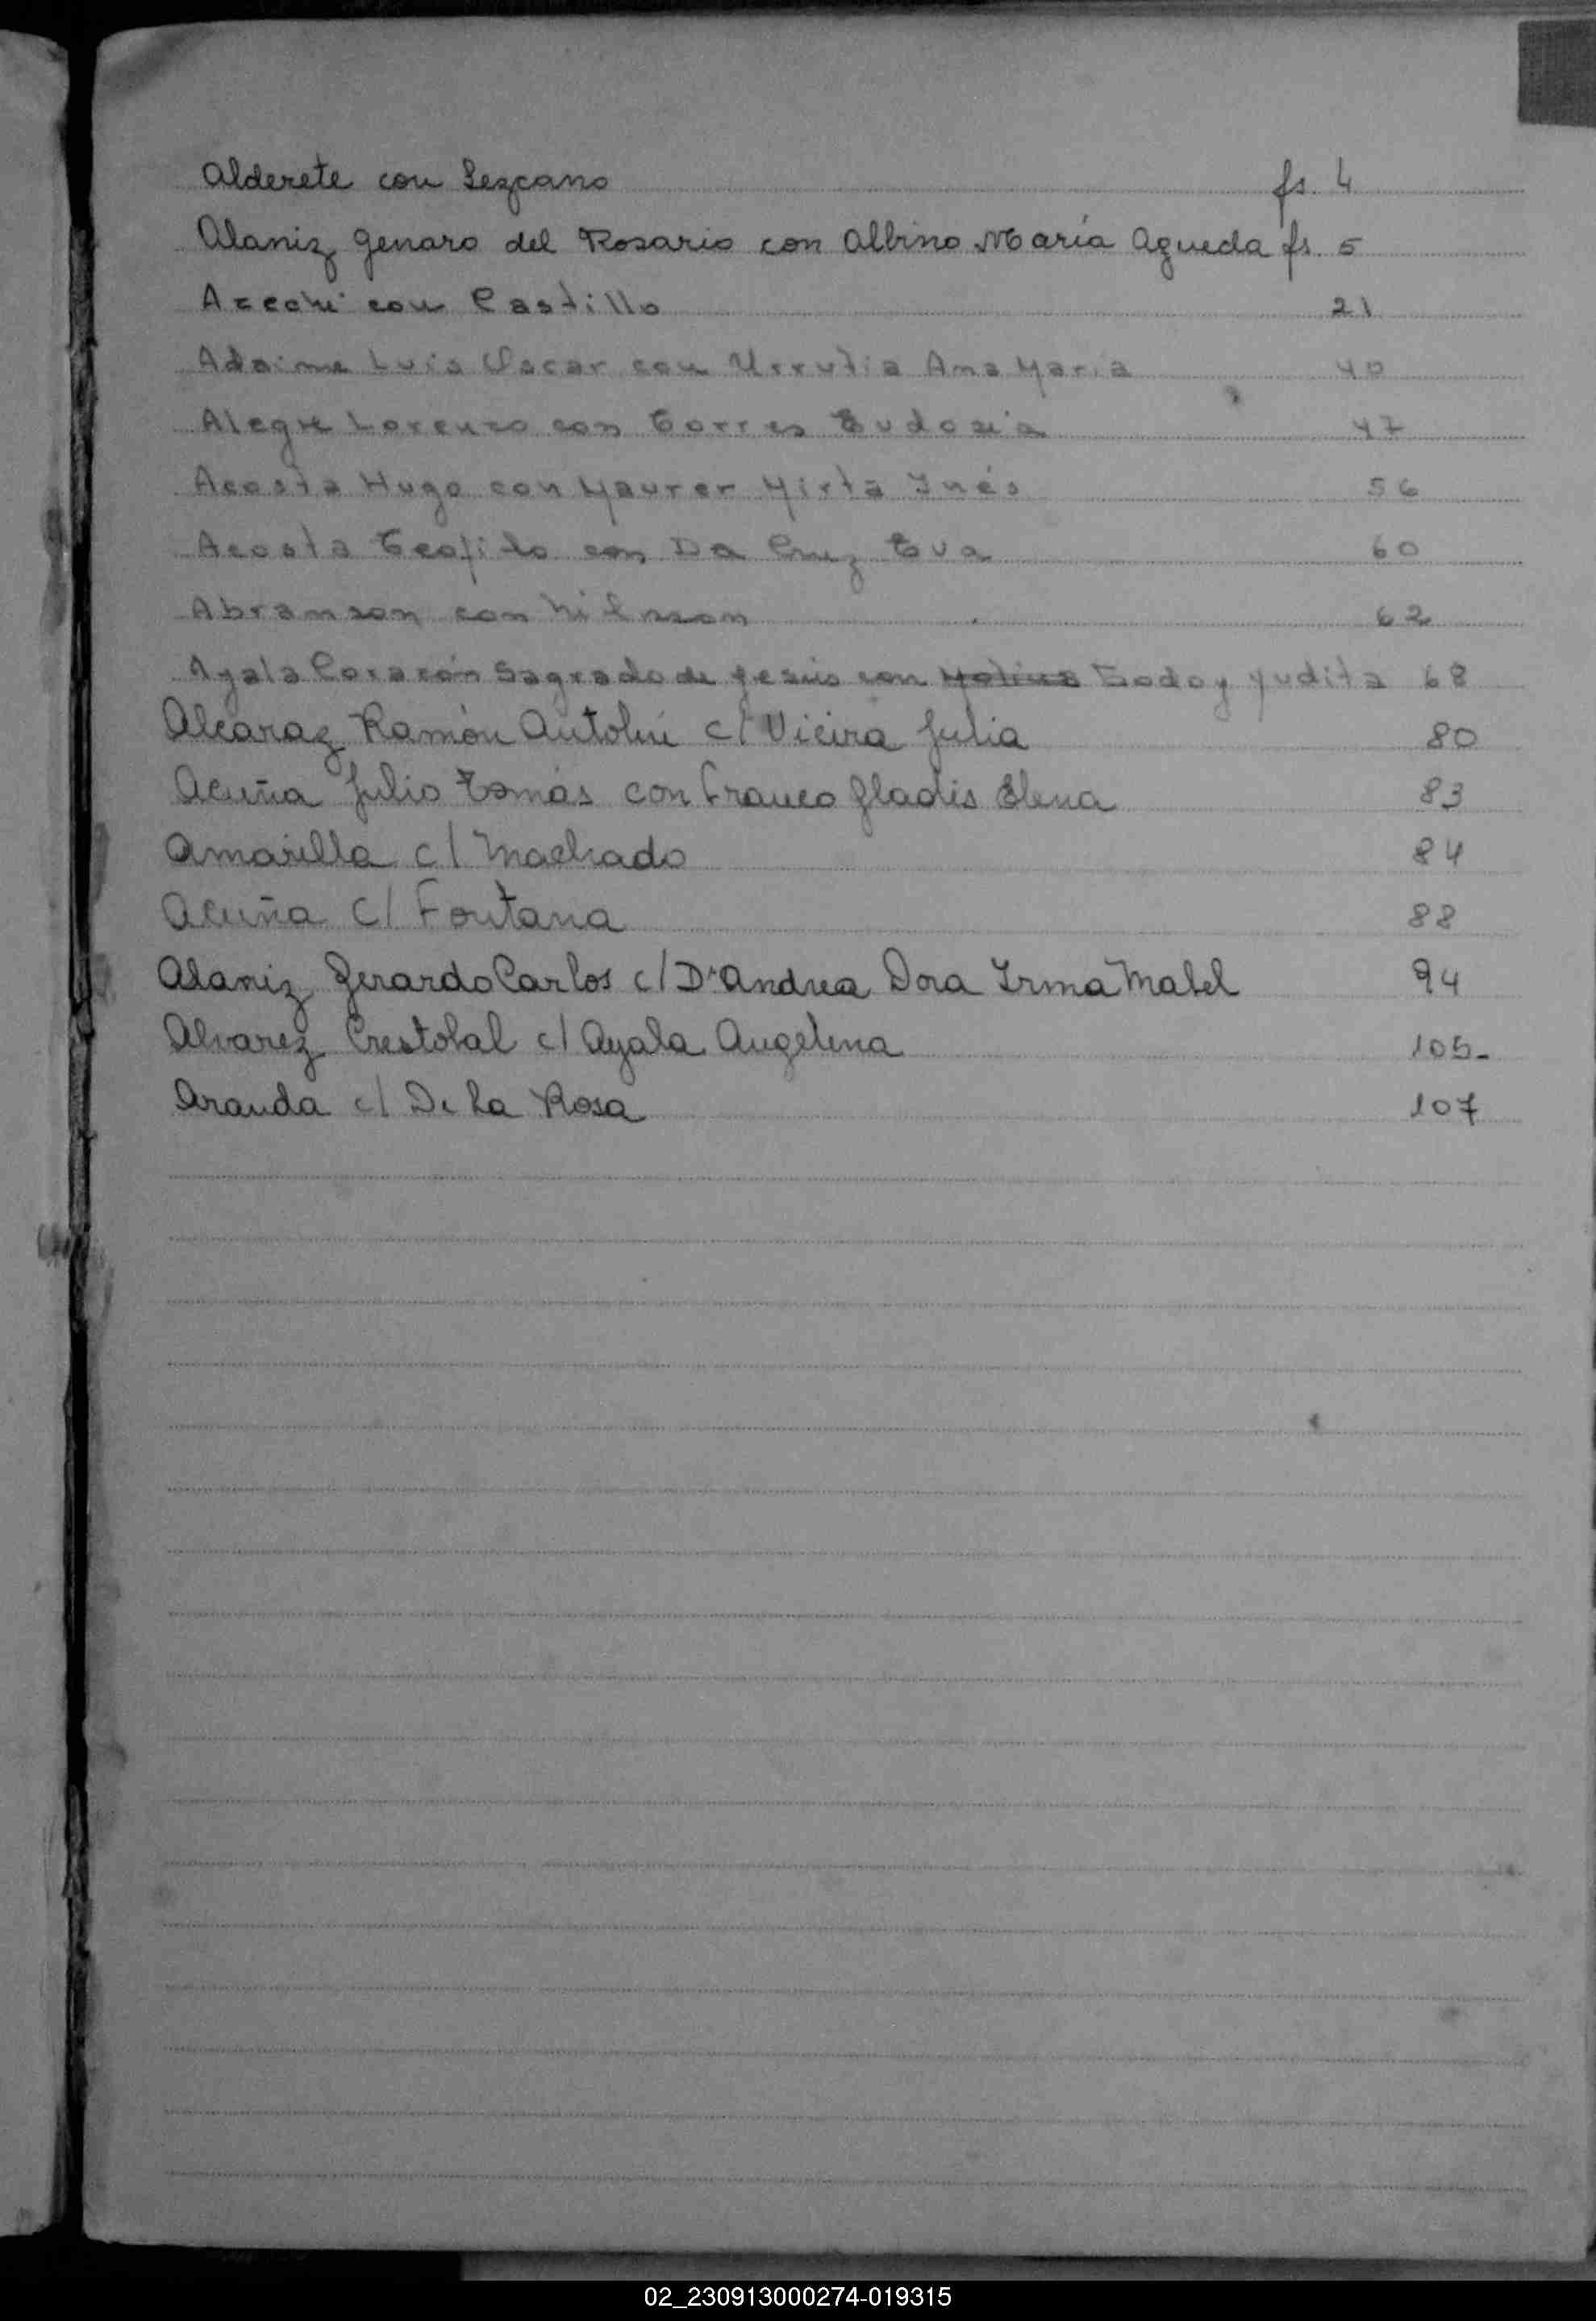 Alderete con Lezcano fs. 4
Alaniz Genaro del Rosario con Albino María Agueda fs. 5
Arechi con Castillo 21
Adaime Luis Oscar con Urrutia Ana Maria 40
Alegre Lorenzo con Torres Eudosia 47
Acosta Hugo con Maurer Mirta Inés 56
Acosta Teofilo con Da Cruz Eva 60
Abramson con Nilsson 62
Ayala Corazón Sagrado de Jesús con Molina Godoy Yudita 68
Alcaraz Ramón Antolín c/ Vieira Julia 80
Acuña Julio Tomás con Franco Gladis Elena 83
Amarilla c/ Machado 84
Acuña c/ Fontana 88
Alaniz Gerardo Carlos c/ D'Andrea Dora Irma Mabel 94
Alvarez Crestobal c/ Ayala Angelina 105-
Aranda c/ De La Rosa 107
02_230913000274-019315